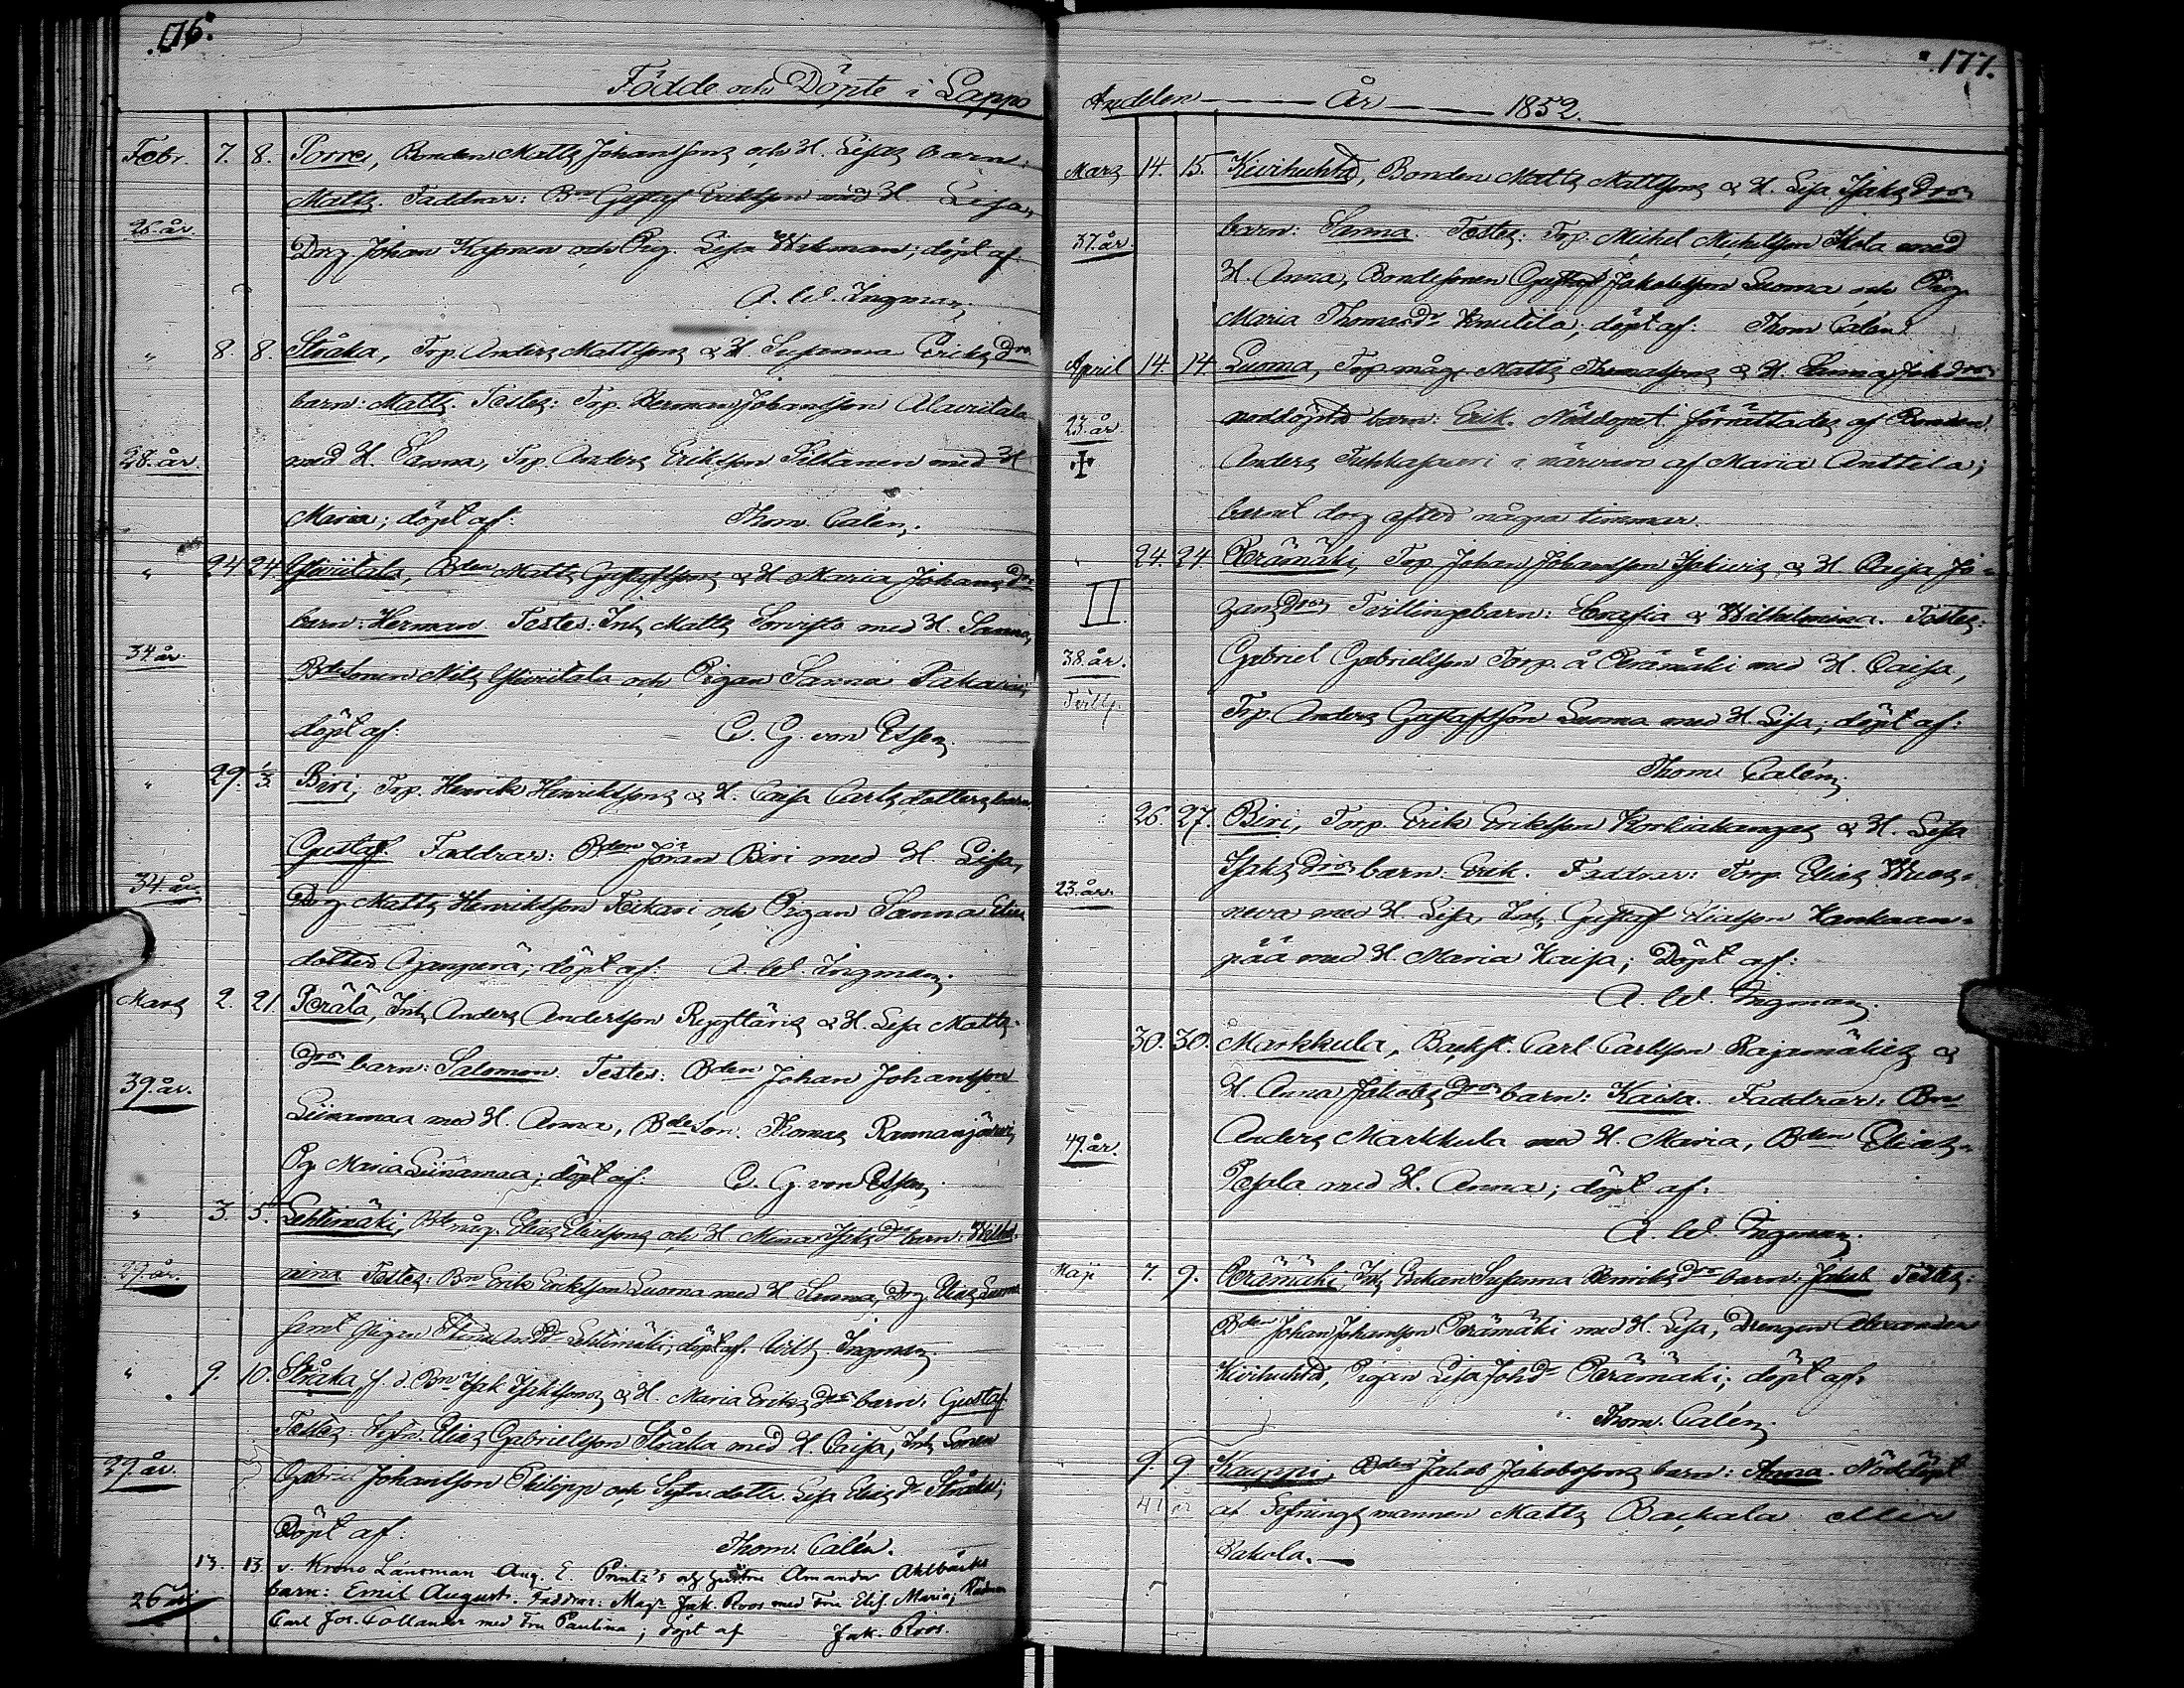 176.
Födde och Döpte i Lappo
Febr. 7. 8. Porre, Bonden Matts Johanssons och H. Lisas barn:
Matts. Faddrar: Bn Gustaf Eriksson med H. Lisa,
26. år.
Drg. Johan Kaponen och Pig. Lisa Wikman; döpt af
A. W. Ingman.
" 8. 8. Ståka, Trp. Anders Mattssons & H. Susanna Eriks Drs
barn: Matts. Testes: Trp. Herman Johansson Alaviitala
28. år. med H. Sanna, Trp. Anders Eriksson Siltanen med H.
Maria; döpt af: Thom. Calén.
" 24 24 Yliviitala, Bden Matts Gustafssons & H. Maria Johans Drs
barn: Herman. Testes: Inh. Matts Sorvisto med H. Sanna,
34 år.
Bdesonen Nils Yliviitala och Pigan Sanna Pakari;
döpt af: C. G. von Essen.
" 29. 1/3 Biri, Trp. Henrik Henrikssons & H. Caisa Carls dotters barn:
Gustaf. Faddrar: Bden Jöran Biri med H. Lisa,
34 år. Drg. Matts Henriksson Pelkari och Pigan Sanna Elias
dotter Ojanperä; döpt af: A. W. Ingman.
Mars 2. 21. Perälä, Inh. Anders Andersson Ryyttäris & H. Lisa Matts
Drs barn: Salomon. Testes: Bden Johan Johansson
39. år.
Liinamaa med H. Anna, Bdeson. Thomas Rannanjärvi,
Pg. Maria Liinamaa; döpt af: C. G. von Essen.
" 3. 5. Lehtimäki, Bdemåg. Elias Eliassons och H. Mina Isaks Drs barn: Wilhel-
29. år. mina Testes: Bn Erik Eriksson Luoma med H. Sanna, Drg. Elias Luoma
samt pigan Lehtimäki; döpt af: Wilh. Ingman.
" 9. 10. Ståka, f. d. Bn Isak Isakssons & H. Maria Eriks Drs barn: Gustaf.
Testes: Sytn. Elias Gabrielsson Ståka med H. Caisa, Inh. Sonen
39. år. Gabriel Johansson Philipp och Sytn. dottr. Lisa Elias Dr Ståka;
Döpt af: Thom. Calén.
13. 13 v. Krono Länsman Aug. E. Printz's och hustru Amanda Ahlbäcks
26 år. barn: Emil August. Faddrar: Magr Jak. Roos med Fru Elis. Maria;
Carl Jos. Collander med Fru Paulina; döpt af Jak. Roos.
177.
Andelen — År — 1852. —
Mars 14. 15. Kivihuhta, Bonden Matts Mattssons & H. Lisa Isaks Drs
37. år. barn: Sanna. Testes: Trp. Michel Michelsson Hola med
H. Anna, Bondesonen Gustaf Jakobsson Luoma och Pig.
Maria Thomas Dr Knutila; döpt af: Thom Calén.
April 14. 14 Luoma, Trp. måg. Matts Thomassons & H. Sanna Joh. Drs
23. år. nöddöpta barn: Erik. Nöddopet förrättades af Bonden
Anders Tuhkasaari i närvaro af Maria Anttila;
barnet dog efter några timmar.
" 24. 24 Perämäki, Trp. Johan Johansson Ypäkivis & H. Caisa Jö-
II. rans Drs Tvillingebarn: Serafia & Wilhelmina. Testes:
38. år. Gabriel Gabrielsson Torp. å Perämäki med H. Caisa,
Tvill. Trp. Anders Gustafsson Luoma med H. Lisa; döpt af:
Thom Calén.
26. 27. Biri, Torp. Erik Eriksson Korkiakangas & H. Lisa
23. år. Isaks Drs barn: Erik. Faddrar: Torp. Elias Wuos-
neva med H. Lisa, Inh. Gustaf Eliasson Kankaan-
pää med H. Maria Kaisa; Döpt af:
A. W. Ingman.
30. 30. Markkula, Backst. Carl Carlsson Rajamäkis &
H. Anna Jakobs Drs barn: Kaisa. Faddrar: Bn
49. år. Anders Markkula med H. Maria, Bden Elias
Pesala med H. Anna; döpt af:
A. W. Ingman.
Maji 7. 9. Perämäki, Inh. Enkan Susanna Henriks Drs barn: Jakob Testes:
Bden Johan Johansson Perämäki med H. Lisa, Drengen Alexander
Kivihuhta, Pigan Lisa Joh. Dr Perämäki; döpt af:
Thom. Calén.
" 9. 9 Kauppi, Bden Jakob Jakobssons barn: Anna. Nöddöpt
41 år af Gefningsmannen Matts Backala eller
Pakola. —